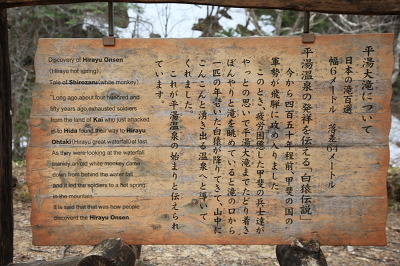 平湯大滝について
日本の滝百選
幅6メートル 落差64メートル
平湯温泉の発祥を伝える「白猿伝説」
今から四百五十年程前、甲斐の国の
軍勢が飛騨に攻め入りました。
このとき、疲労困憊した甲斐の兵士達が
やっとの思いで平湯大滝までたどり着き
ぼんやりと滝を眺めていると滝の口から
一匹の年老いた白猿が降りてきて、山中に
こんこんと湧き出る温泉へと導いて
くれました。
これが平湯温泉の始まりと伝えられ
ています。
Discovery of Hirayu Onsen
(Hirayu hot spring)
Tale of Shirozaru (white monkey)
"Long ago about four hundred and
fifty years ago, exhausted soldiers
from the land of Kai who just attacked
in to Hida found their way to Hirayu
Ohtaki (Hirayu great waterfall) at last.
As they were looking at the waterfall
blankly, an old white monkey came
down from behind the water fall
and it led the soldiers to a hot spring
in the mountain.
It is said that that was how people
discoverd the Hirayu Onsen.